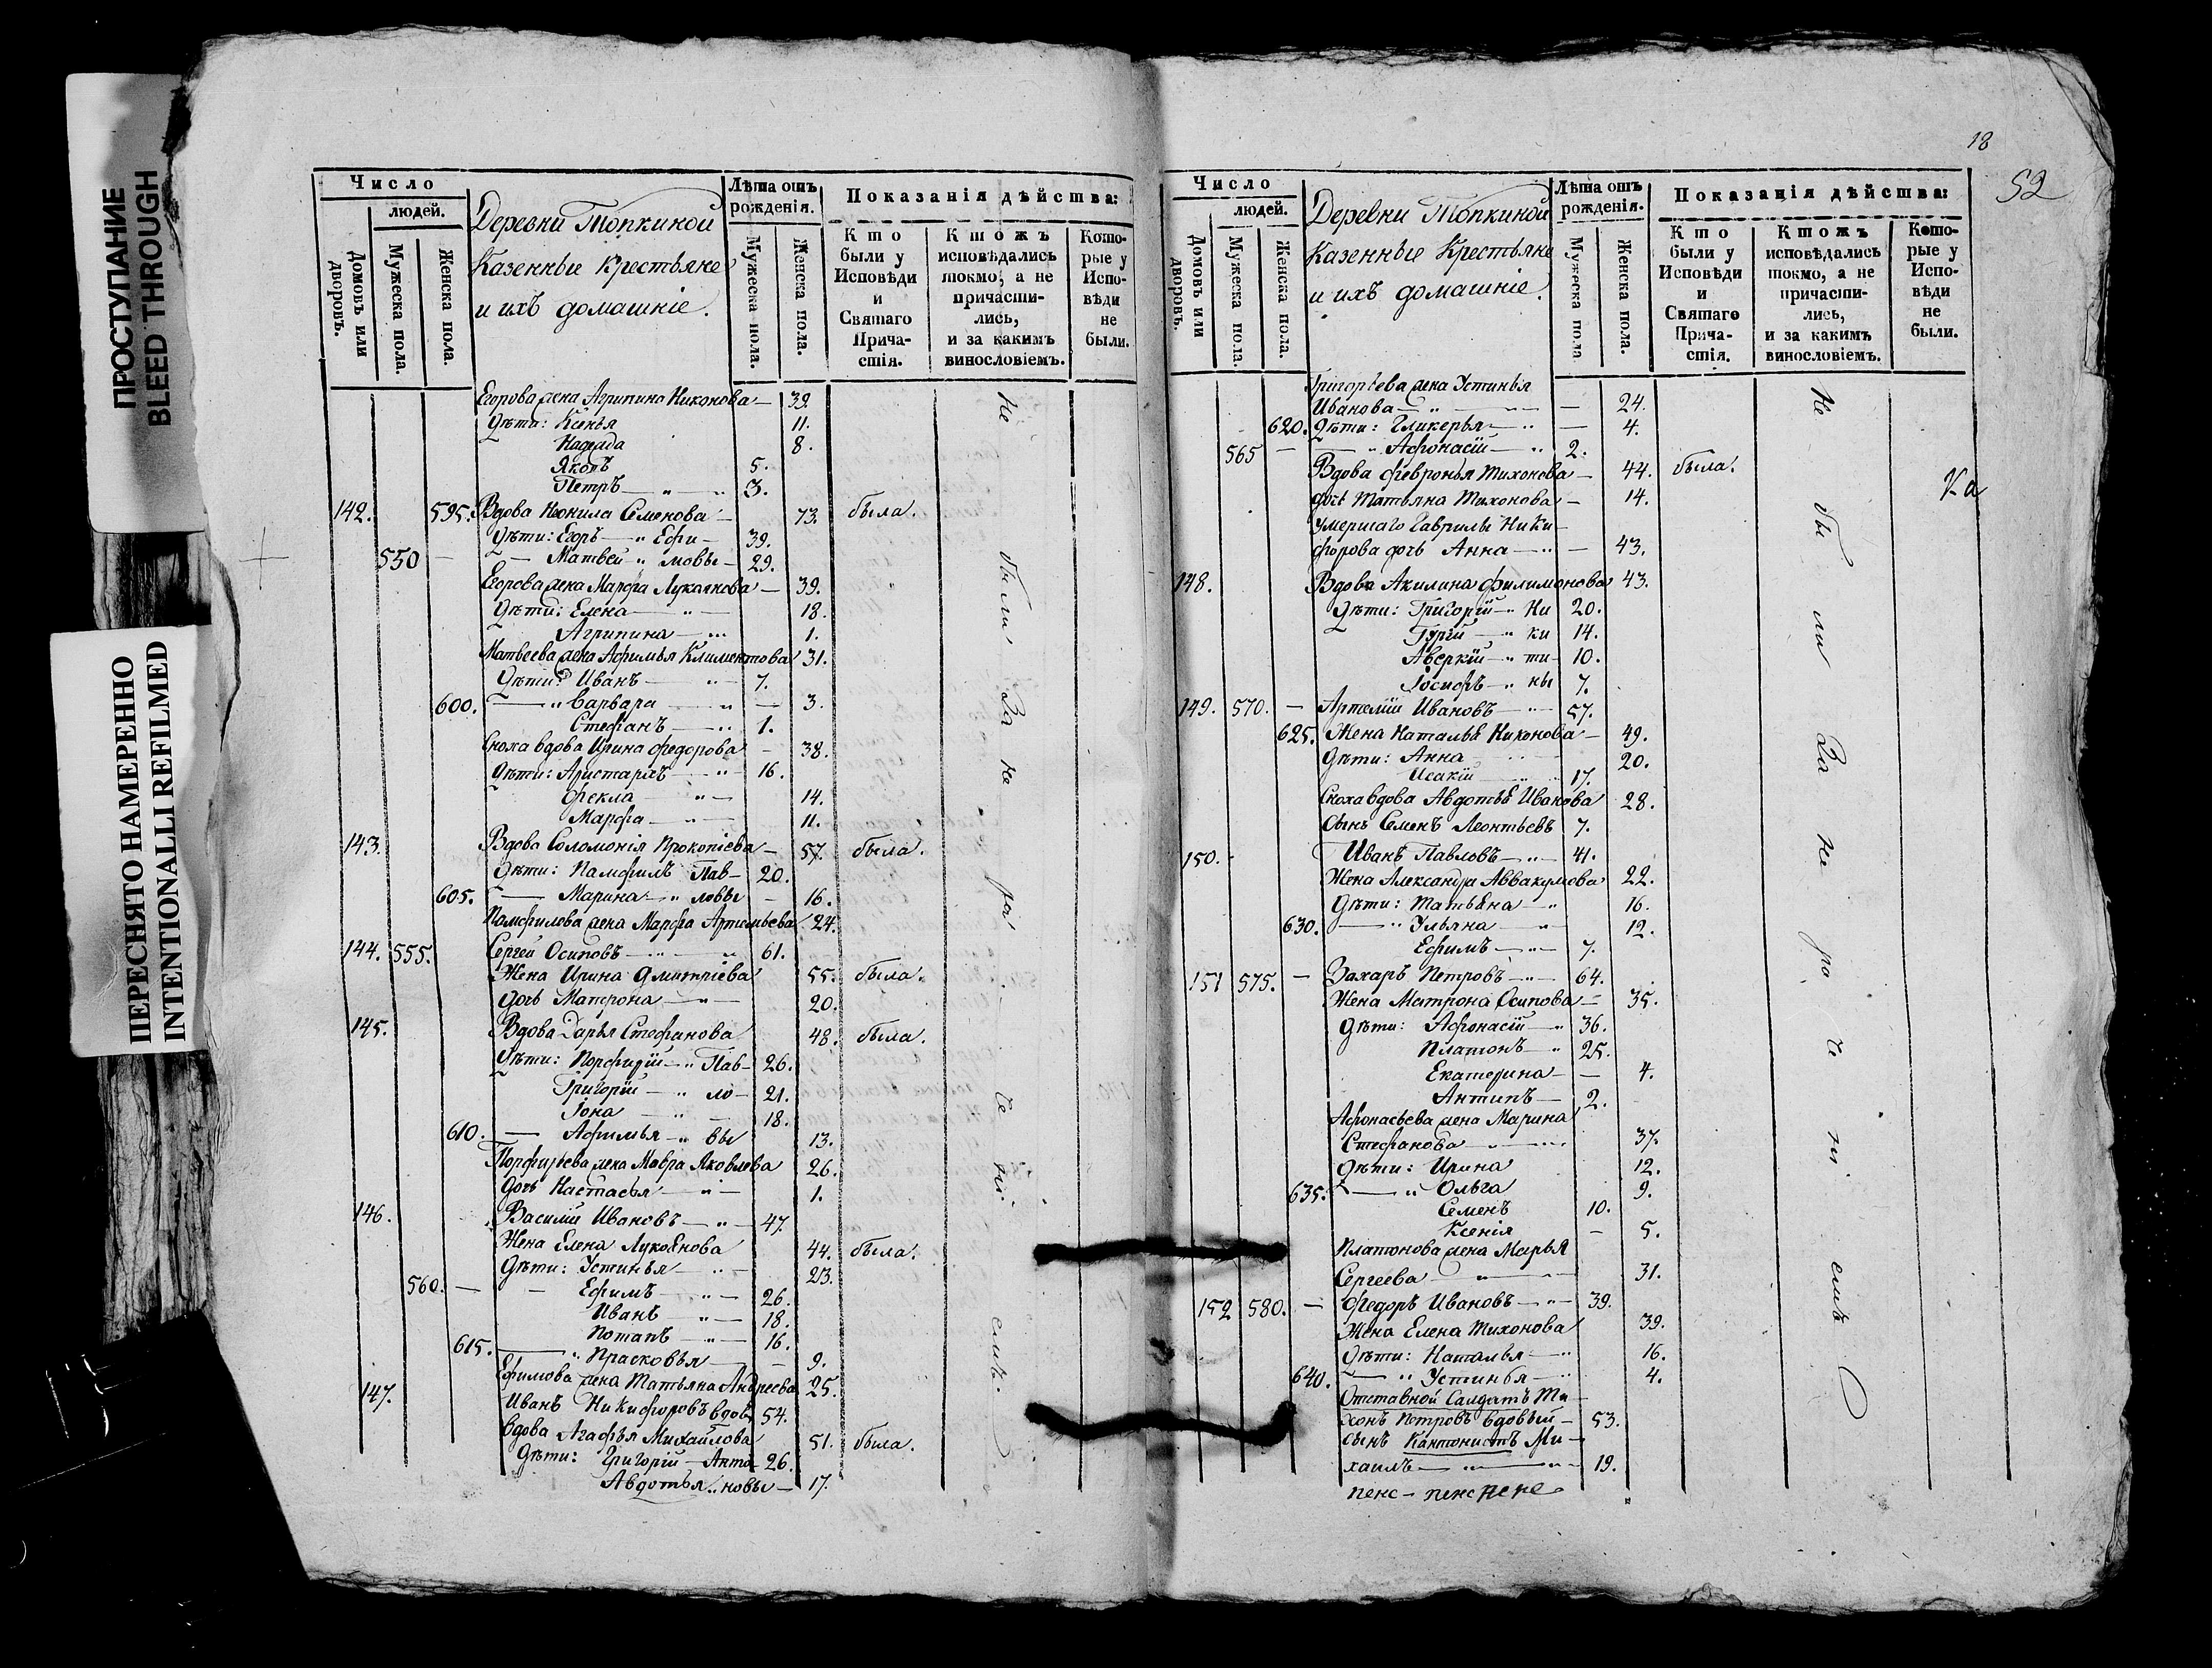 ПРОСТУПАНИЕ
BLEED THROUGH
ПЕРЕСНЯТО НАМЕРЕННО
INTENTIONALLI REFILMED
Число
людей.
Домовъ или дворовъ.
Мужеска пола.
Женска пола.
Деревни Топкиной
Казенные крестьяне
и ихъ домашніе.
Лѣта отъ рожденія.
Мужеска пола.
Женска пола.
Показанія дѣйства:
Кто были у Исповѣди и Святаго Причастія.
Ктожъ исповѣдались токмо, а не причастились, и за какимъ винословіемъ.
Которые у Исповѣди не были.
Егорова жена Агрипина Никонова — 39.
Дѣти: Ксенья 11.
Надежда 8.
Яковъ 5.
Петръ — 3.
142. 595. Вдова Неонила Семенова — 73. была.
Дѣти: Егоръ — Ефи — 39.
550 — Матвей мовы — 29.
Егорова жена Марфа Лукоянова — 39.
Дѣти: Елена — 18.
Агрипина — 1.
Матвеева жена Афимья Климентова 31.
Дѣти: Иванъ — 7.
600. — Варвара — 3.
Стефанъ — 1.
Сноха вдова Ирина Федорова — 38.
Дѣти: Аристархъ — 16.
Фекла — 14.
Марфа — 11.
143. Вдова Соломонія Прокопіева — 57. была.
Дѣти: Памфилъ Пав— 20.
605. — Марина — ловы — 16.
Памфилова жена Марфа Артемьева 24.
144. 555. Сергей Осиповъ — 61.
Жена Ирина Дмитріева 55. была.
Дочь Матрона — 20.
145. Вдова Дарья Стефанова 48. была.
Дѣти: Порфирій — Пав— 26.
Григорій — ло— 21.
Іона — 18.
610. — Афимья — вы 13.
Порфирьева жена Мавра Яковлева 26.
Дочь Настасья — 1.
146. Василий Ивановъ — 47.
Жена Елена Лукоянова 44. была.
Дѣти: Устинья — 23.
560. — Ефимъ — 26.
Иванъ — 18.
Потапъ — 16.
615. — Прасковья — 9.
Ефимова жена Татьяна Андреева 25.
147. Иванъ Никифоровъ вдов. 54.
Вдова Агафья Михайлова 51. была.
Дѣти: Григорій — Анто— 26.
Авдотья новы — 17.
Не были За не ра че ні емъ.
18
52
Число
людей.
Домовъ или дворовъ.
Мужеска пола.
Женска пола.
Деревни Топкиной
Казенные Крестьяне
и ихъ домашніе.
Лѣта отъ рожденія.
Мужеска пола
Женска пола.
Показанія дѣйства:
Кто были у Исповѣди и Святаго Причастія.
Ктожъ исповѣдались токмо, а не причастились, и за какимъ винословіемъ.
Которые у Исповѣди не были.
Григорьева жена Устинья
Иванова — 24.
620. Дѣти: Гликерья — 4.
565 — Афонасій — 2.
Вдова Февронья Тихонова — 44. была.
дочь Татьяна Тихонова — 14.
Умершаго Гаврилы Ники—
форова дочь Анна — 43.
148. Вдова Акилина Филимонова 43.
Дѣти: Григорій — Ни 20.
Гурій — ки 14.
Аверкій — ти— 10.
Іосифъ — ны 7.
149. 570. — Артемій Ивановъ — 57.
625. Жена Наталья Никонова — 49.
Дѣти: Анна 20.
Исакій 17.
Сноха вдова Авдотья Иванова 28.
Сынъ Семенъ Леонтьевъ 7.
150. Иванъ Павловъ — 41.
Жена Александра Аввакумова 22.
Дѣти: Татьяна — 16.
630. — Ульяна — 12.
Ефимъ — 7.
151 575. — Захаръ Петровъ — 64.
Жена Матрона Осипова — 35.
Дѣти: Афонасій — 36.
Платонъ — 25.
Екатерина — 4.
Антипъ — 2.
Афонасьева жена Марина
Стефанова — 37.
Дѣти: Ирина 12.
635. — Ольга 9.
Семенъ 10.
Ксенія — 5.
Платонова жена Марья
Сергеева — 31.
152 580. — Федоръ Ивановъ — 39.
Жена Елена Тихонова 39.
Дѣти: Наталья — 16.
640. — Устинья — 4.
Отставной Салдатъ Ти—
хонъ Петровъ вдовый — 53.
сынъ Кантонистъ Ми—
хаилъ — 19.
Не бы ли За не ра че ні емъ
Ка